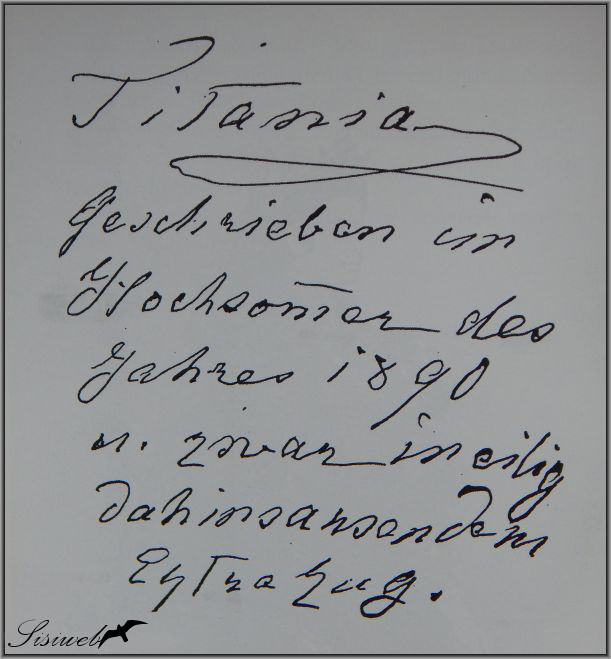 Titania
Geschrieben im
Hochsom̅er des
Jahres 1890
u. zwar in eilig
dahinsausendem
Extrazug.
Sisiweb